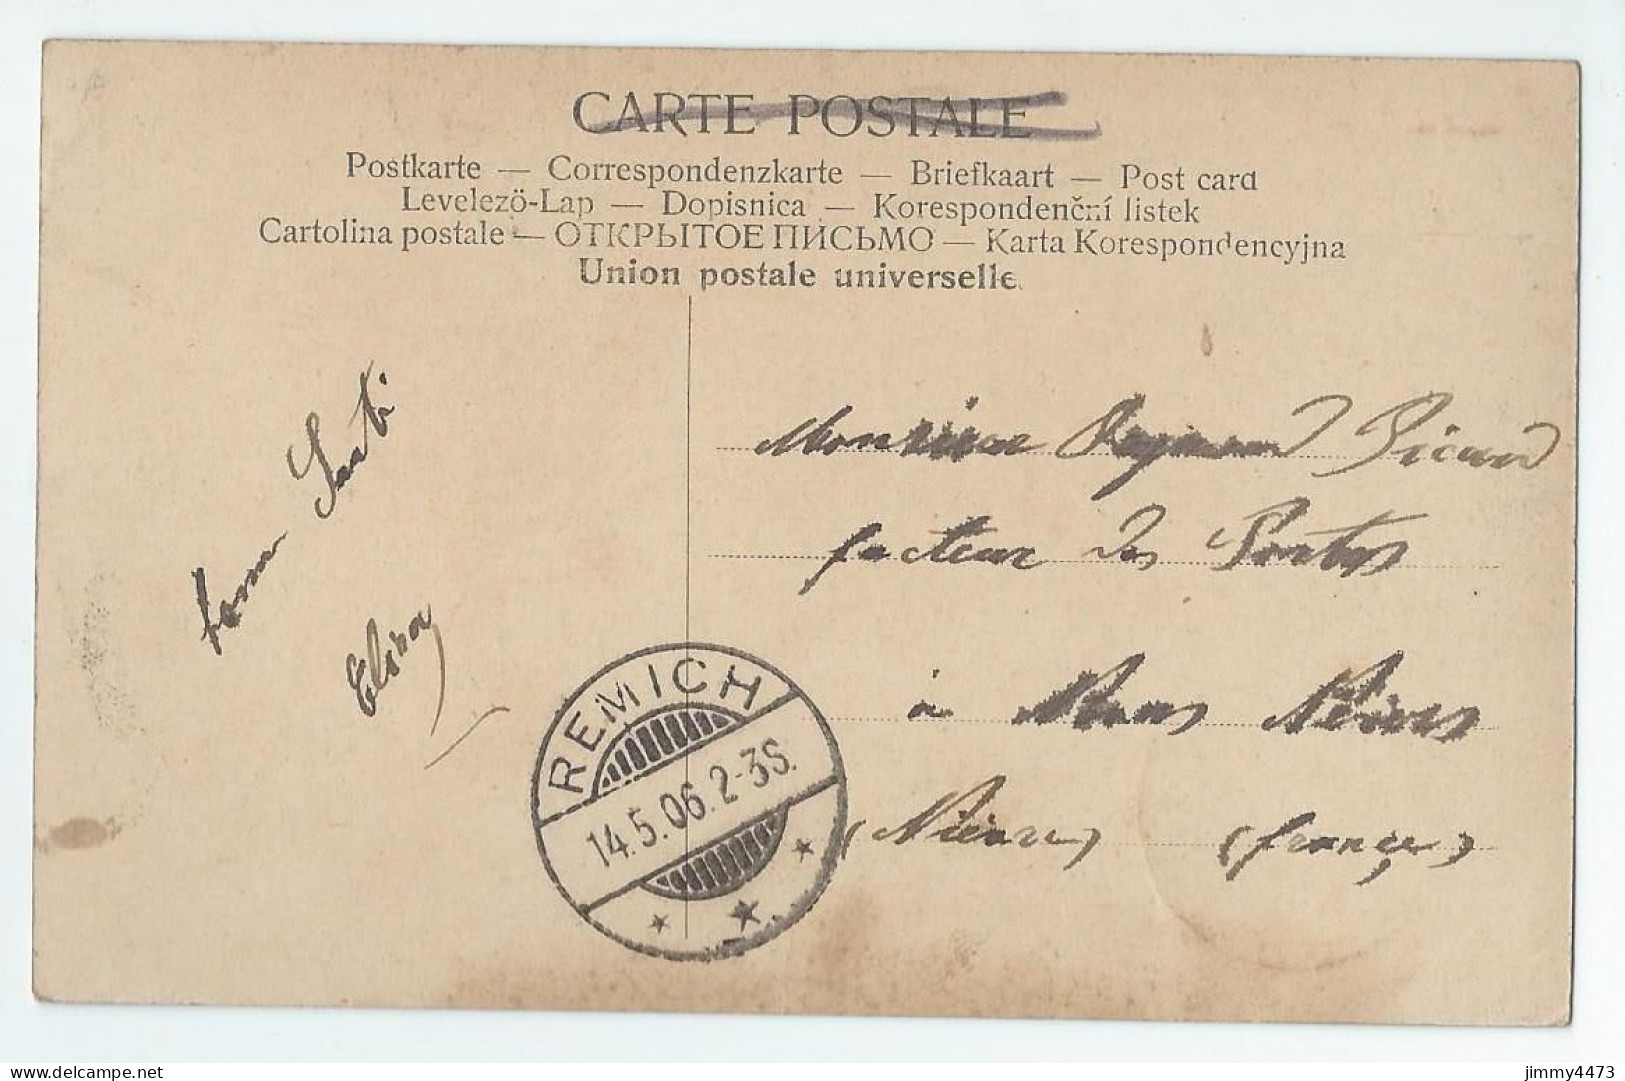 CARTE POSTALE
Postkarte — Correspondenzkarte — Briefkaart — Post card
Levelezö-Lap — Dopisnica — Korespondenční listek
Cartolina postale — ОТКРЫТОЕ ПИСЬМО — Karta Korespondencyjna
Union postale universelle.
Elira
REMICH
14.5.06.2-3S.
Monsieur Raymond Picard
facteur des Postes
à
(Nièvre) (françe)
jimmy4473